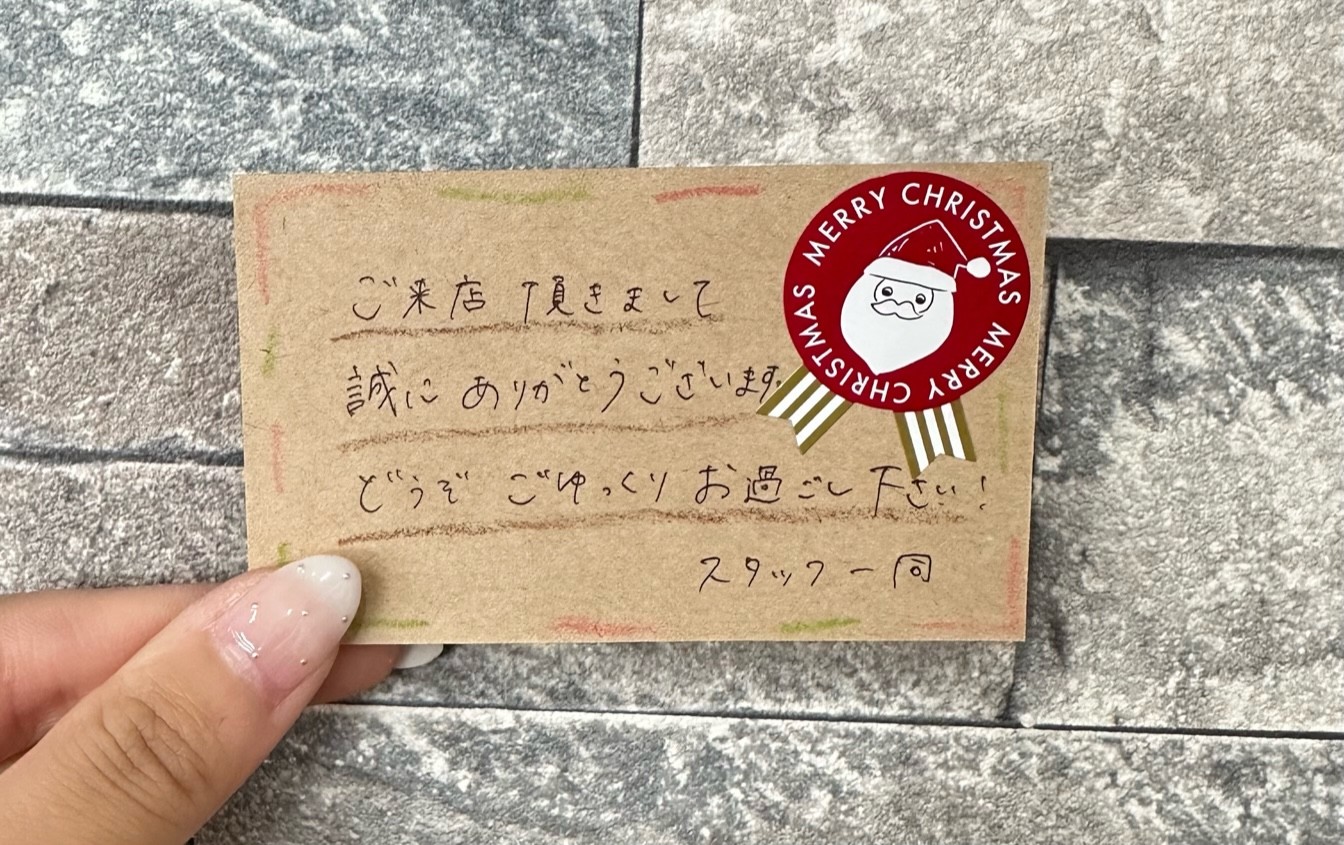 ご来店 頂きまして
誠に ありがとうございます。
どうぞ ごゆっくり お過ごし下さい!
スタッフ一同
MERRY CHRISTMAS MERRY CHRISTMAS